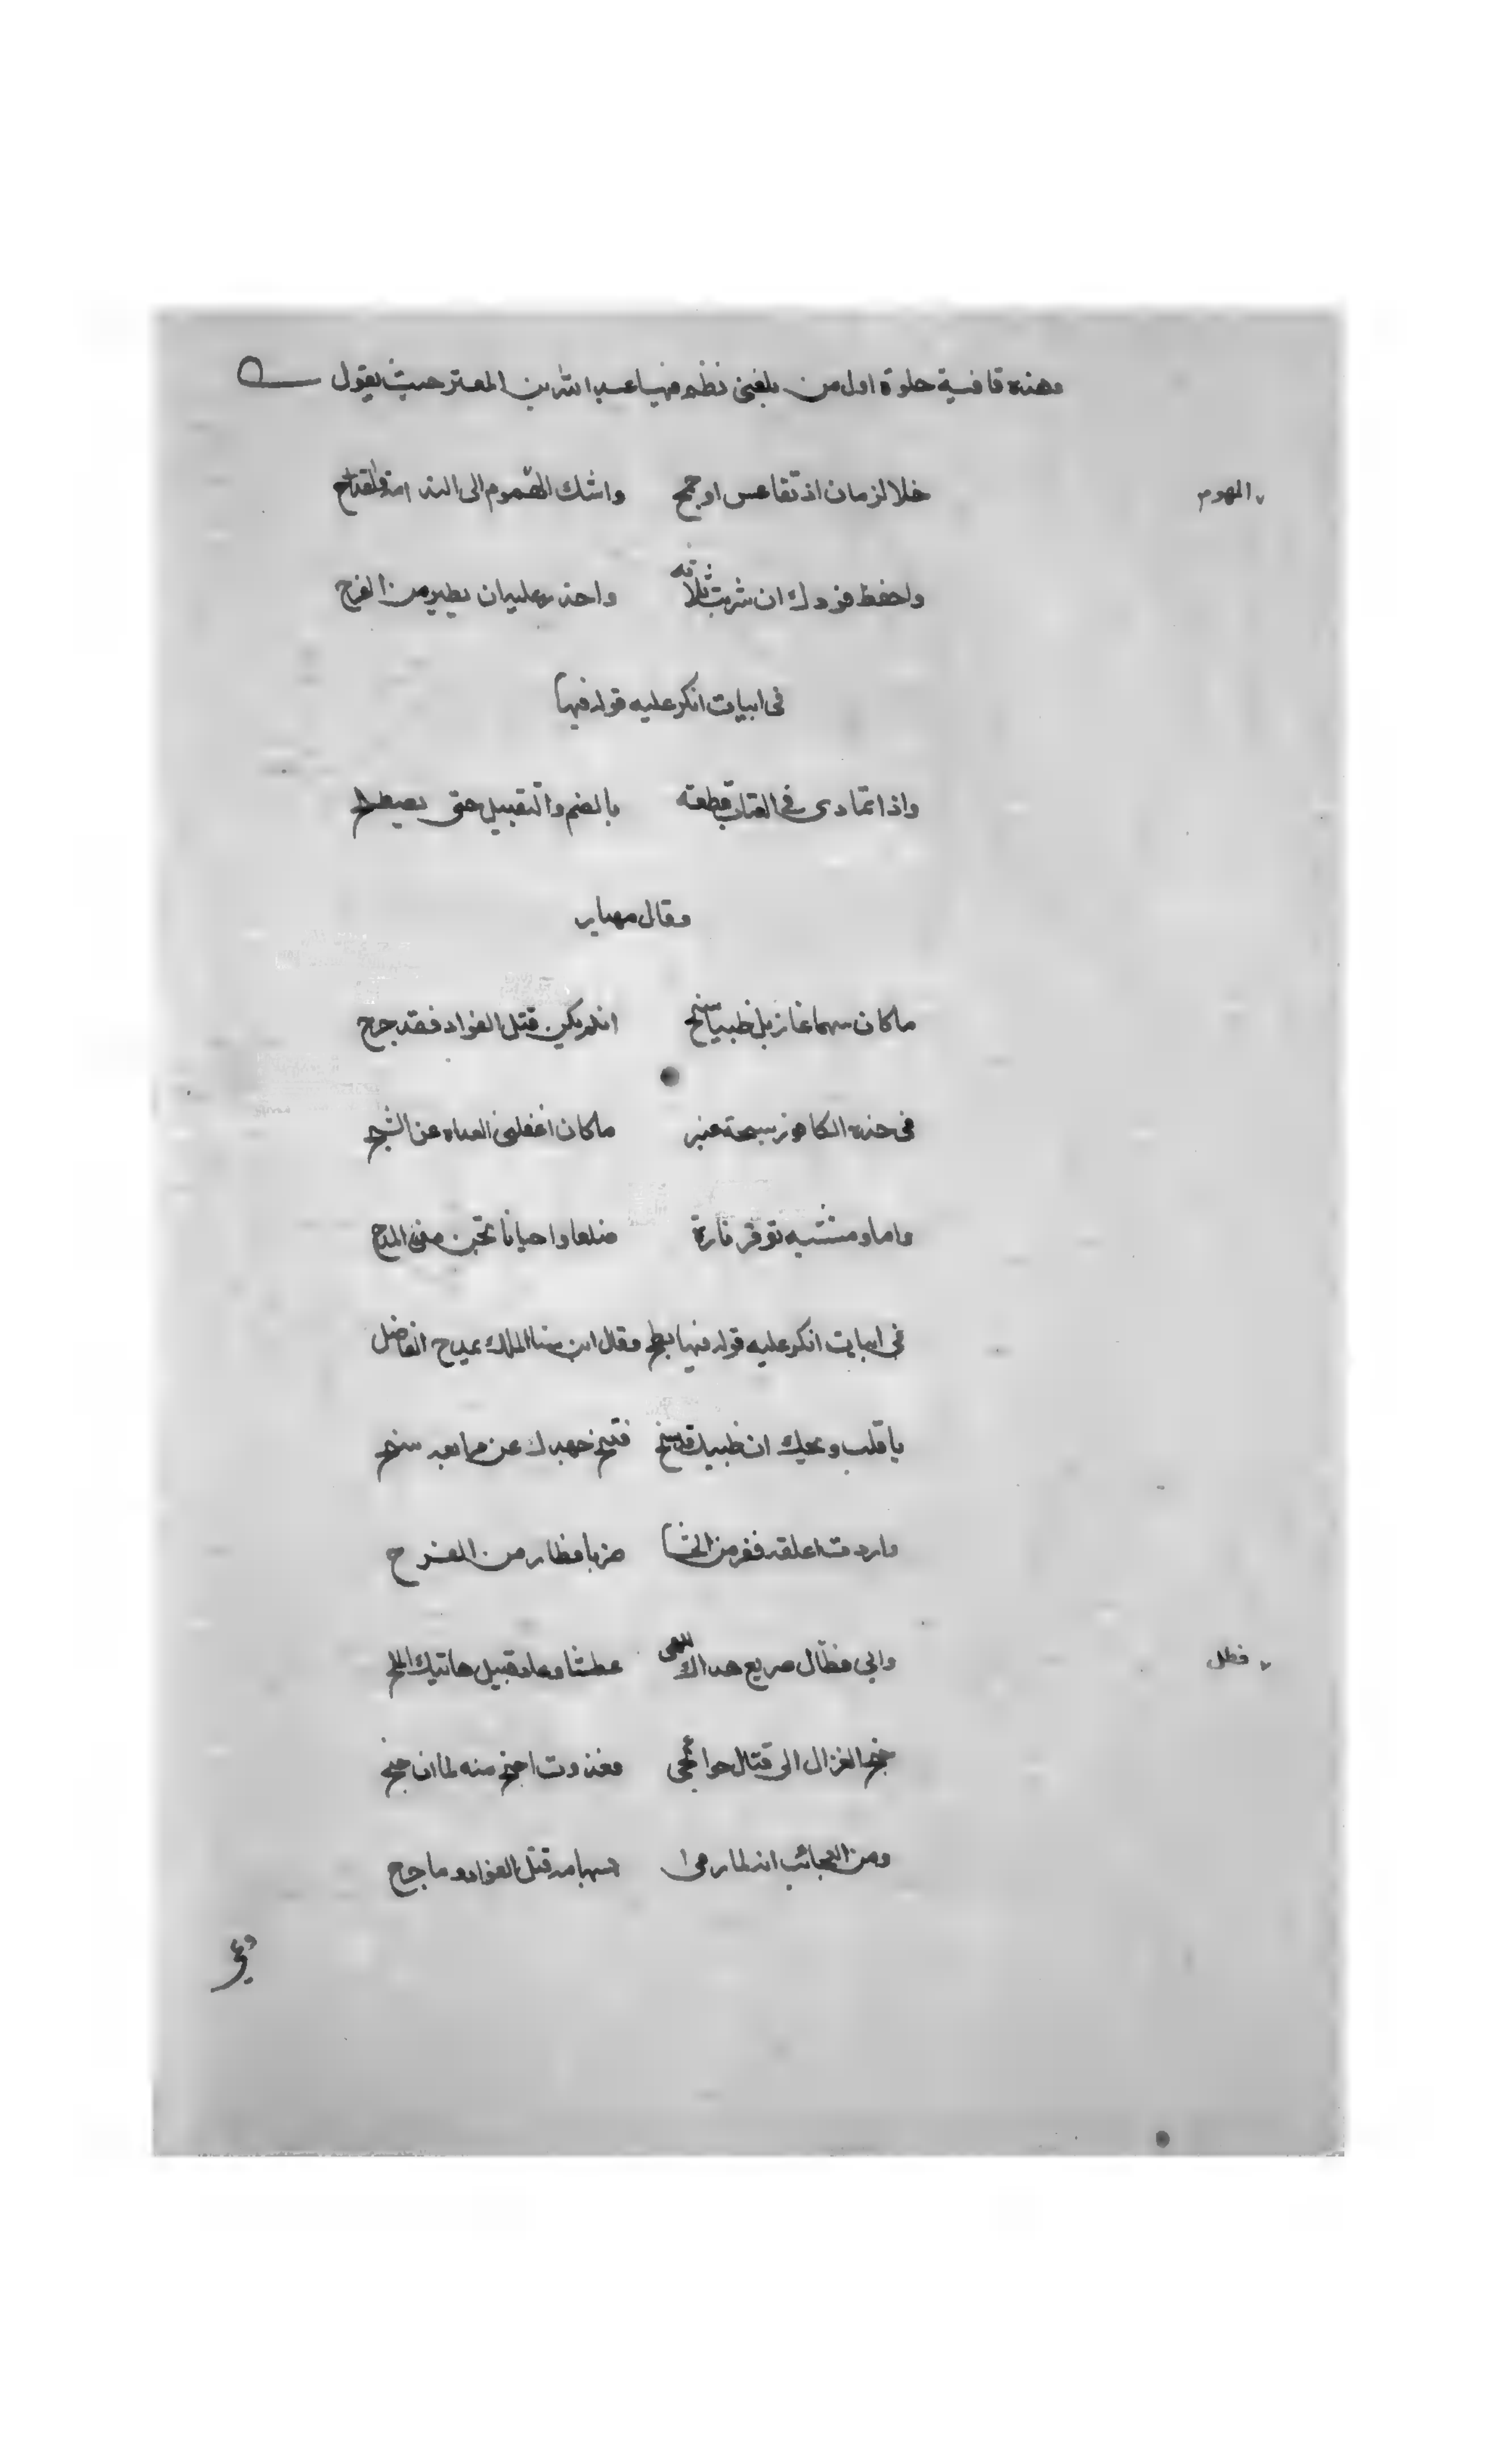 وهذه قافية حلوة اول من بلغني نظم فيها عبد الله بن المعتز حيث يقول
خل الزمان اذ تقاعس او جمح واشك الهموم الى المدامة والقدح
، الهموم
واحفظ فؤدك ان شربت ثلاثة واحذر عليه ان يطير من الفرح
في ابيات انكر عليه قوله فيها
واذا تمادى في العتاب قطعته بالضم والتقبيل حتى يصطلح
وقال مهيار
ما كان سهما غار بل ظبيا سنح ان لم يكن قتل الفواد فقد جرح
في خده الكافور سبحة عنبر ما كان اغفلني الغداة عن السبح
واما ومشيته توقر تارة صلفا واحيانا يجن من المرح
في ابيات انكر عليه قوله فيها بطح وقال ابن سنا الملك يمدح الفاضل
يا قلب ويحك ان ظبيك قد سنح فتنح جهدك عن مرابعه سنح
واردت اعلقه ففر من الحشا طربا وطار من الفرح
وابى فظال صريع هداك اللمى عطشا وعاد قبيل هاتيك الملح
، فظل
جنح الغزال الى قتال جوانحي فغدوت اجنح منه لما ان جنح
ومن العجائب انه لما رمى بسهامه قتل الفواد وما جرح